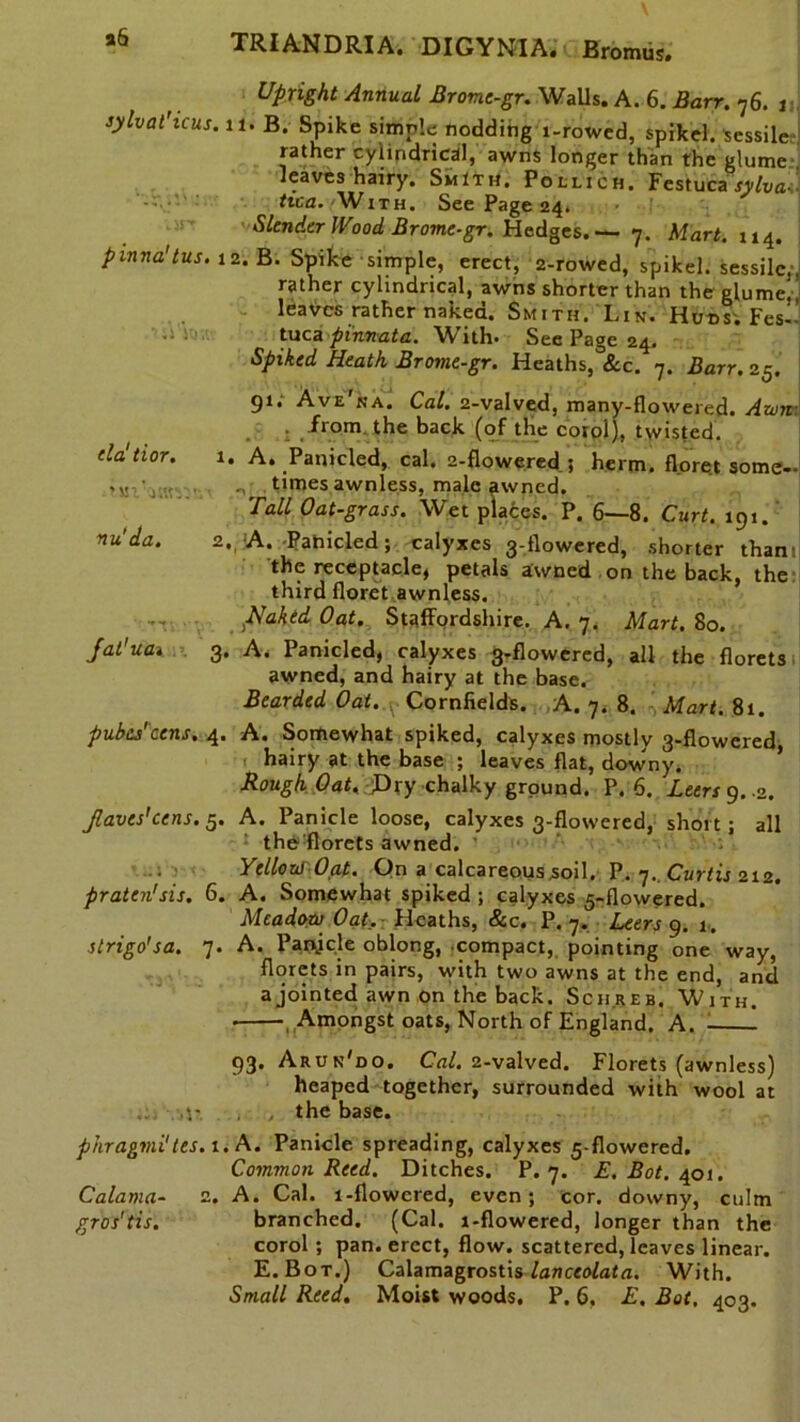 26 TRIANDRIA. DIGYNIA. Bromus.
Upright Annual Brome-gr. Walls. A. 6. Barr. 76. 1
sylvat'icus. 11. B. Spike simple nodding 1-rowed, spikel. sessile
rather cylindrical, awns longer than the glume
leaves hairy. Smith. Pollich. Festuca sylva-
tica. With. See Page 24.
Slender Wood Brome-gr. Hedges.— 7. Mart. 114.
pinna'tus. 12. B. Spike simple, erect, 2-rowed, spikel. sessile,
rather cylindrical, awns shorter than the glume,
leaves rather naked. Smith. Lin. Huds. Fes-
tuca pinnata. With. See Page 24.
Spiked Heath Brome-gr. Heaths, &c. 7. Barr. 25.
91. Ave'na. Cal. 2-valved, many-flowered. Awn
from the back (of the corol), twisted.
ela'tior. 1. A. Panicled, cal. 2-flowered; herm. floret some-
times awnless, male awned.
Tall Oat-grass. Wet places. P. 6—8. Curt. 191.
nu'da. 2. A. Panicled; calyxes 3-flowered, shorter than
the receptacle, petals awned on the back, the
third floret awnless.
Naked Oat. Staffordshire. A. 7. Mart. 80.
fat'ua. 3. A. Panicled, calyxes 3-flowered, all the florets
awned, and hairy at the base.
Bearded Oat. Cornfields. A. 7. 8. Mart. 81.
pubes'cens. 4. A. Somewhat spiked, calyxes mostly 3-flowered,
hairy at the base; leaves flat, downy.
Rough Oat. Dry chalky ground. P. 6. Leers 9. 2.
flaves'cens. 5. A. Panicle loose, calyxes 3-flowered, short; all
the florets awned.
Yellow Oat. On a calcareous soil. P. 7. Curtis 212.
praten'sis. 6. A. Somewhat spiked; calyxes 5-flowered.
Meadow Oat. Heaths, &c. P. 7. Leers 9. 1.
strigo'sa. 7. A. Panicle oblong, compact, pointing one way,
florets in pairs, with two awns at the end, and
a jointed awn on the back. Schreb. With.
—— Amongst oats, North of England. A. ——
93. Arun'do. Cal. 2-valved. Florets (awnless)
heaped together, surrounded with wool at
the base.
phragmi'tes. 1. A. Panicle spreading, calyxes 5-flowered.
Common Reed. Ditches. P. 7. E. Bot. 401.
Calama- 2. A. Cal. 1-flowered, even; cor. downy, culm
gros'tis. branched. (Cal. 1-flowered, longer than the
corol; pan. erect, flow. scattered, leaves linear.
E. Bot.) Calamagrostis lanceolata. With.
Small Reed. Moist woods. P. 6, E. Bot. 403.